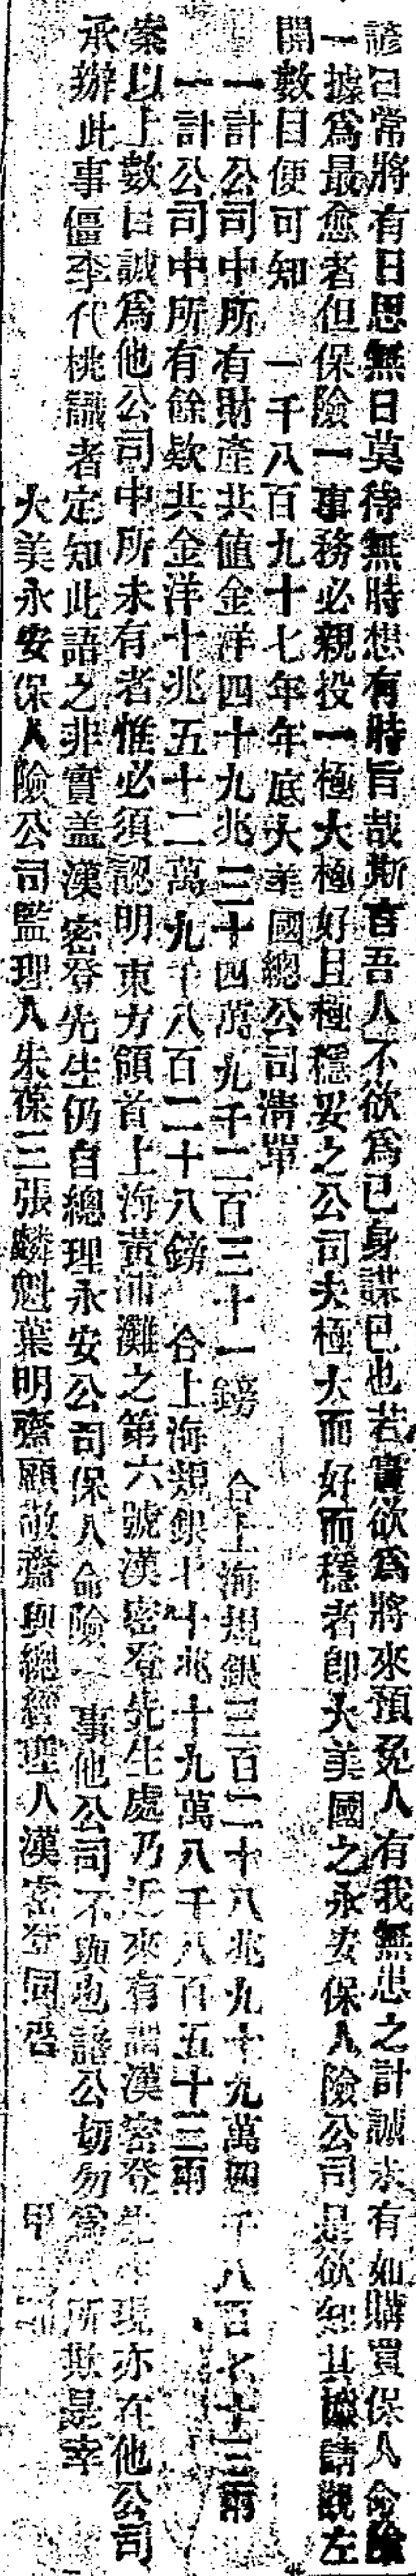 諺曰常將有日思無日莫待無時想有時旨哉斯言吾人不欲爲己身謀已也若實欲爲將來預免人有我無患之計誠未有如購買保人命險
一據爲最愈者但保險一事務必親投一極大極好且極穩妥之公司夫極大而好而穩者卽大美國之永安保人險公司是欲知其據請觀左
開數目便可知　一千八百九十七年年底大美國總公司淸單
一計公司中所有財產共値金洋四十九兆三十四萬九千二百三十一鎊　合上海規銀三百二十八兆九十九萬四千八百七十三兩
一計公司中所有餘欵共金洋十兆五十二萬九千八百二十八鎊　合上海規銀七十兆十九萬八千八百五十三兩
案以上數目誠爲他公司中所未有者惟必須認明東方領首上海黃浦灘之第六號漢密登先生處乃近來有謂漢密登先生現亦在他公司
承辦此事僵李代桃識者定知此語之非實盖漢密登先生仍自總理永安公司保人命險一事他公司不與也諸公切勿爲所欺是幸
大美永安保人險公司監理人朱葆三張麟魁葉明齋顧敬齋與總經理人漢密登同啓　甲